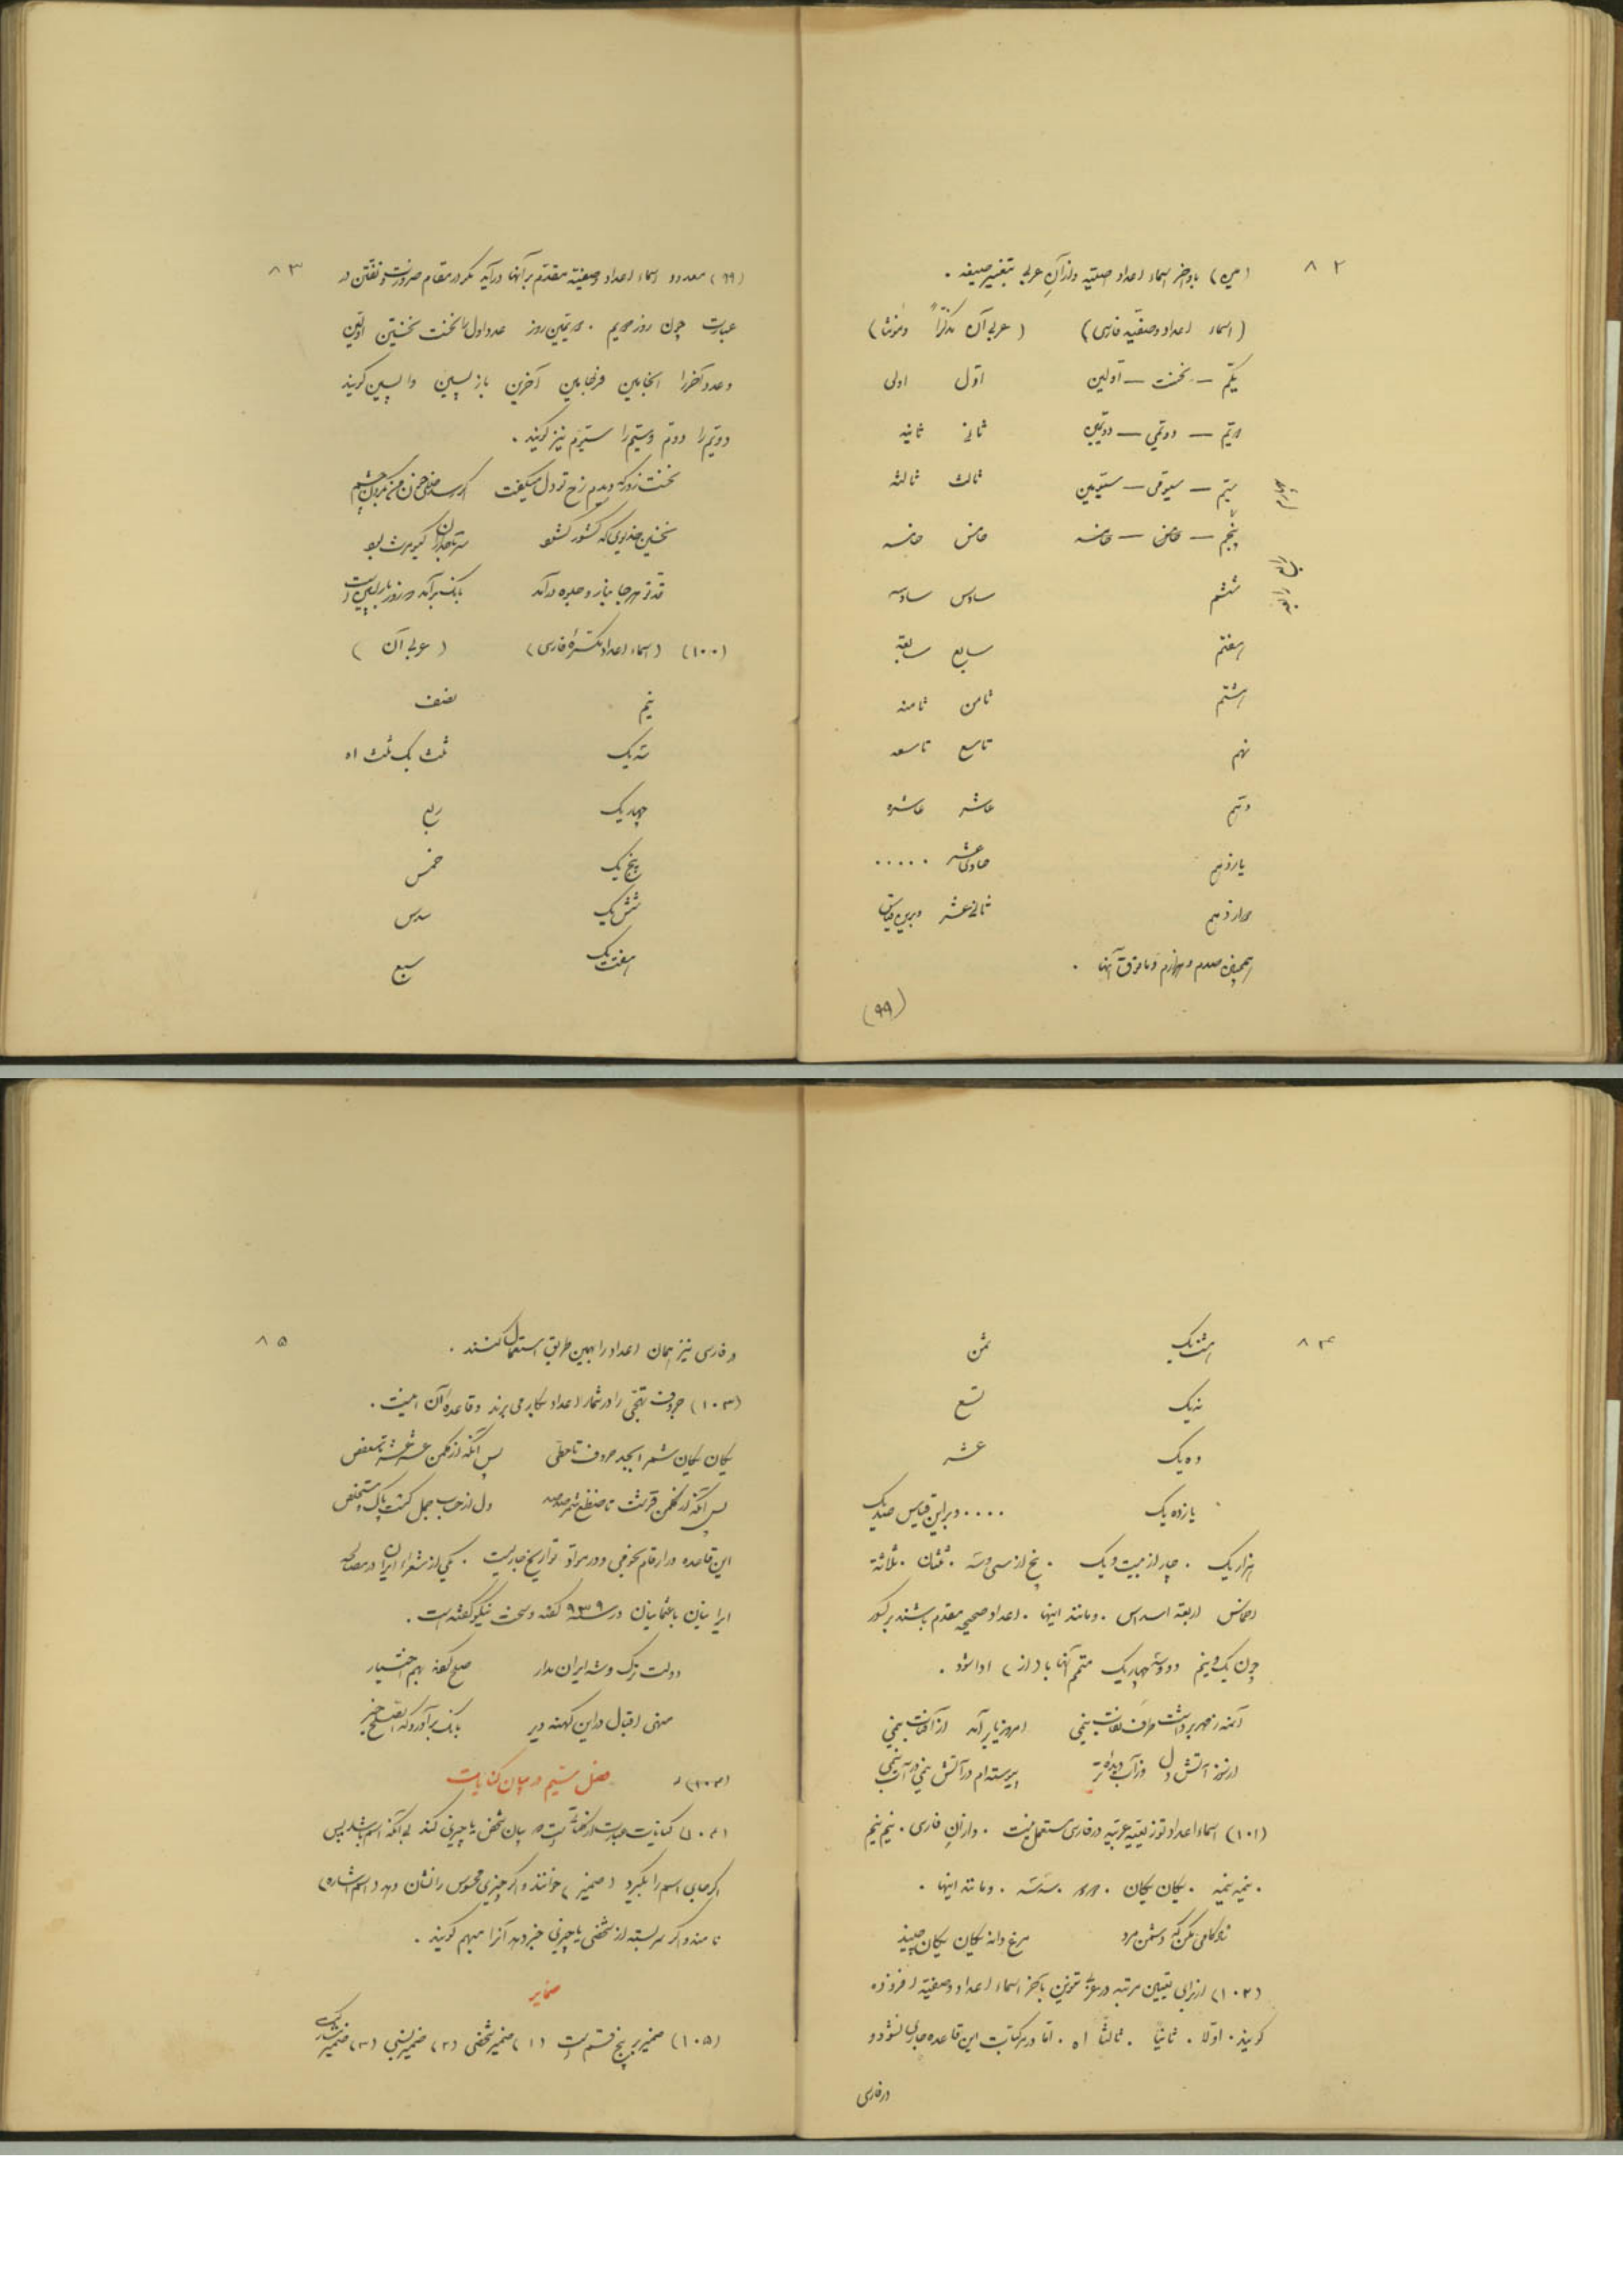 ۸۲
(مین) باواخر اسماء اعداد صفتیه واز آنِ عربی بتغییر صیغه .
(اسماء اعداد وصفیّه فارسی) (عربی آن مذکراً ومونثا)
یکم — نخست — اولین اوّل اولی
دویّم — دویمی — دویمین ثانی ثانیه
سیّم — سیومی — سیومین ثالث ثالثه
پنجم — خامس — خامسه خامس خامسه
ششم سادس سادسه
هفتم سابع سابعه
هشتم ثامن ثامنه
نهم تاسع تاسعه
دهم عاشر عاشره
یازدهم حادیعشر .....
دوازدهم ثانیعشر وبرین قیاس
همچنین صدم وهزارم ومافوق آنها .
(۹۹)
۸۳
(۹۹) معدود اسماء اعداد وصفیّه مقدّم بر آنها درآید مگر در مقام ضرورت وتفنّن در
عبارت چون روز دویم . دویمین روز عدد اول را نخست نخستین اولین
وعدد آخر را انجامین فرجامین آخرین بازپسین واپسین گویند
دویّم را دوم وسیّم را سیُم نیز گویند .
نخست روز که دیدم رخ تو دل میگفت اگر رسد خللی خون من بگردن چشم
نخستین خدیوی که کشور گشود سر تاجداران کیومرث بود
قد تو هر جا بناز و جلوه درآمد بانگ برآمد که روز بازپسین است
(۱۰۰) (اسماء اعداد مکسّرهٔ فارسی) (عربی آن)
نیم نصف
سه یک ثلث یک ثلث اه
چهار یک ربع
پنج یک خمس
شش یک سدس
هفت یک سبع
۸۴
هشت یک ثمن
نه یک تسع
ده یک عشر
یازده یک .... وبراین قیاس صد یک
هزار یک . چار از بیست ویک . پنج از سی وسه . ثلثان . ثلاثة
اخماس اربعة اسداس . ومانند اینها . اعداد صحیحه مقدم باشند بر کسور
چون یک ونیم دو وشش چهاریک متمم آنها با (از) ادا شود .
آمنه از مهر برداشت طرف نقاب نیمی امروز یار برآمد از آفتاب نیمی
از سوز آتش دل وز آب دیدهٔ تر پیوسته ام در آتش نیمی در آب نیمی
(۱۰۱) اسماء اعداد توزیعیّه عربیّه در فارسی مستعمل نیست . واز آنِ فارسی . نیم نیم
. نیمه نیمه . یکان یکان . دو دو . سه سه . ومانند اینها .
مرغ دانه یکان یکان چیند
(۱۰۲) از برای تعیین مرتبه در عربی تنوین بآخر اسماء اعداد وصفیّه افزوده
گویند . اولا . ثانیا . ثالثا اه . امّا در مرکبات این قاعده جاری نشود و
در فارسی
۸۵
در فارسی نیز همان اعداد را بهمین طریق استعمال کنند .
(۱۰۳) حروف تهجّی را در شمار اعداد بکار می برند وقاعدهٔ آن اینست .
یکان یکان شمر ابجد حروف تا حطّی پس آنگه از کلمن عشر عشر تا سعفص
پس آنگه از قرشت تا ضظغ شمر صد صد دل از حساب جمل گشت پاک ومستخلص
این قاعده در ارقام نجومی ودر مواد تواریخ جاریست . یکی از شعراء ایران در مصالحه
ایرانیان با عثمانیان در سنه ۹۳۹ گفته وسخت نیکو گفته است .
دولت ترک وشه ایران مدار صلح بهم اختیار
منهی اقبال در این کهنه دیر بانگ برآورد که الصلح خیر
فصل سیّم در بیان کنایات
(۱۰۴) کنایات عبارت از کلماتیست که بیان شخص یا چیزی کند بی آنکه اسم باشد پس
اگر جای اسم را بگیرد (ضمیر) خوانند واگر چیزی محسوس را نشان دهد (اسم اشاره)
نامند واگر سربسته از شخصی یا چیزی خبر دهد آنرا مبهم گویند .
ضمایر
(۱۰۵) ضمیر بر پنج قسم است (۱) ضمیر شخصی (۲) ضمیر نسبی (۳) ضمیر مشترک